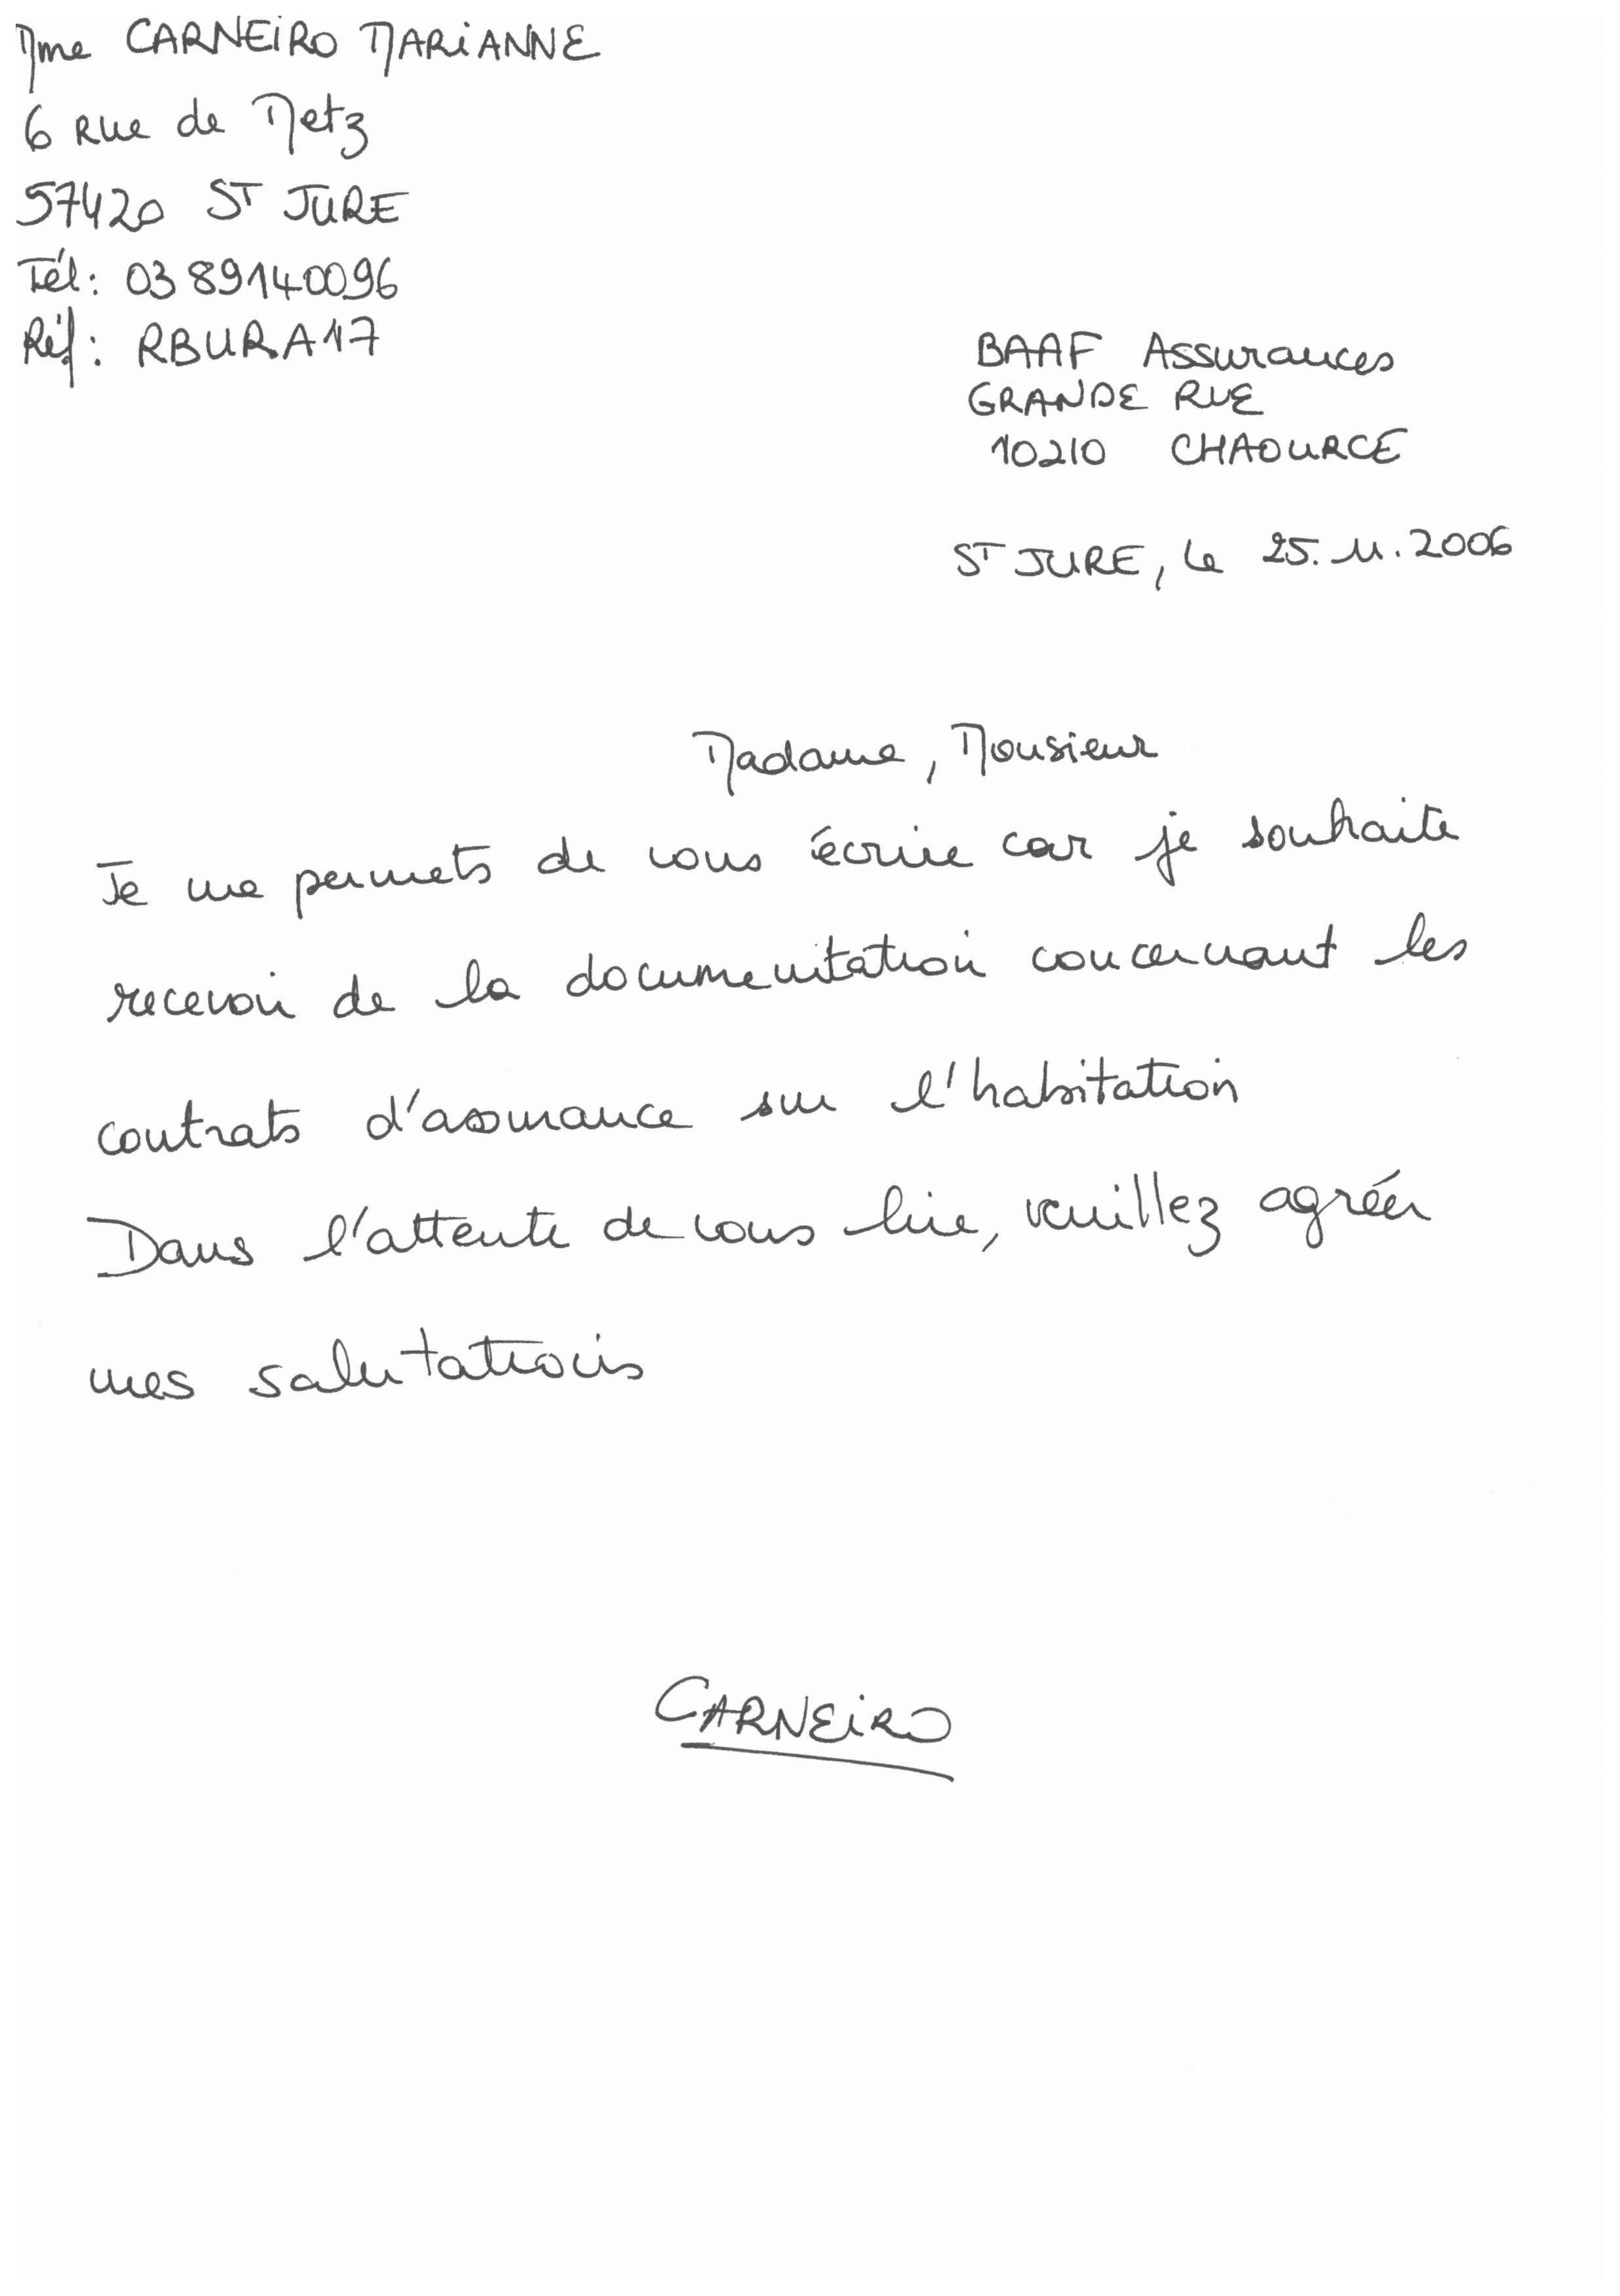 Mme CARNEIRO MARIANNE
6 Rue de Metz
57420 ST JURE
Tél: 03 89140096
Réf: RBURA17
BAAF Assurances
GRANDE RUE
10210 CHAOURCE
ST JURE, le 25.11.2006
Madame, Monsieur
Je me permets de vous écrire car je souhaite
recevoir de la documentation concernant les
contrats d'assurance sur l'habitation
Dans l'attente de vous lire, veuillez agréer
mes salutations
CARNEIRO